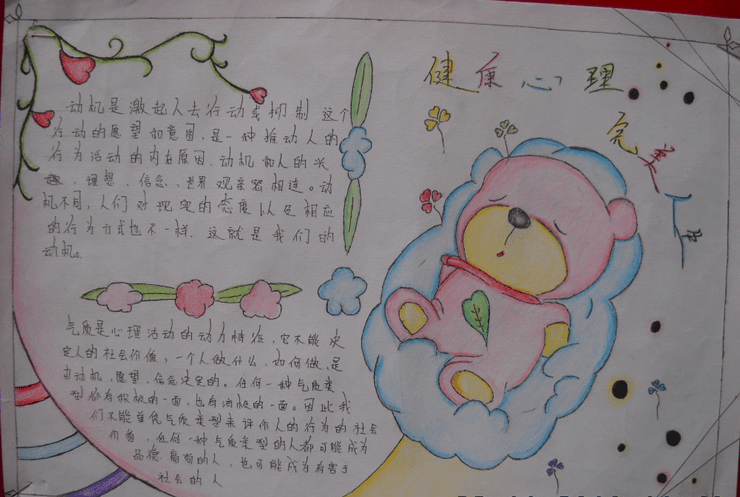 健康心理
完美人生
动机是激起人去行动或抑制这个
行动的愿望和意图,是一种推动人的
行为活动的内在原因.动机和人的兴
趣、理想、信念、世界观紧密相连。动
机不同,人们对现实的态度以及相应
的行为方式也不一样.这就是我们的
动机。
气质是心理活动的动力特征,它不能决
定人的社会价值,一个人做什么,如何做,是
由动机,愿望,信念决定的。任何一种气质类
型都有积极的一面,也有消极的一面。因此我
们不能单凭气质类型来评价人的行为的社会
价值,任何一种气质类型的人都可能成为
品德高尚的人,也可能成为有害于
社会的人